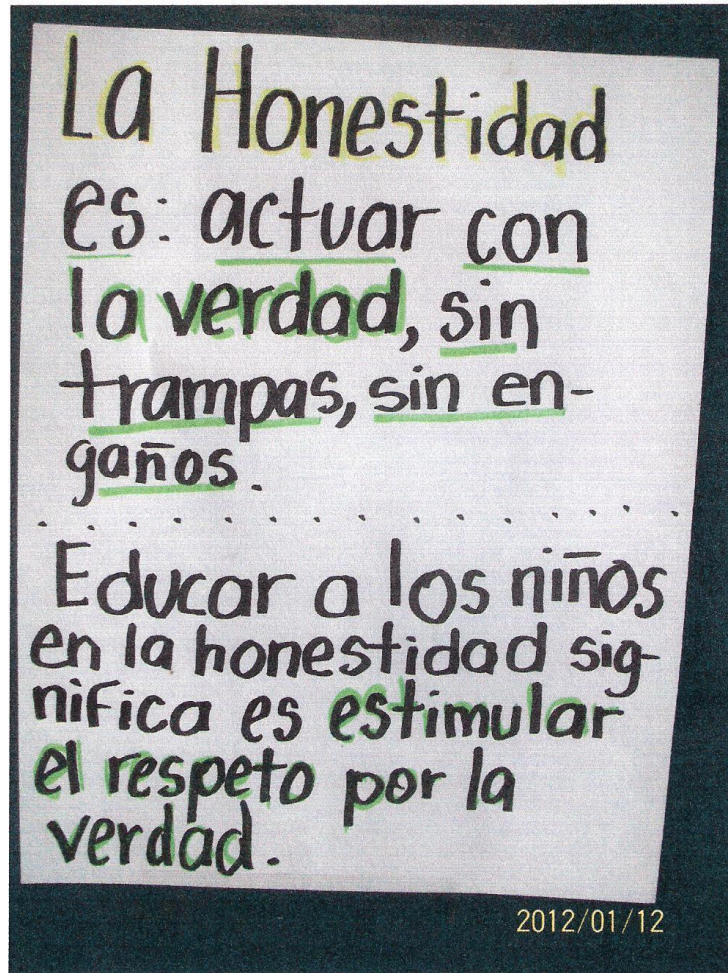 La Honestidad
es: actuar con
la verdad, sin
trampas, sin en-
gaños.
Educar a los niños
en la honestidad sig-
nifica es estimular
el respeto por la
verdad.
2012/01/12